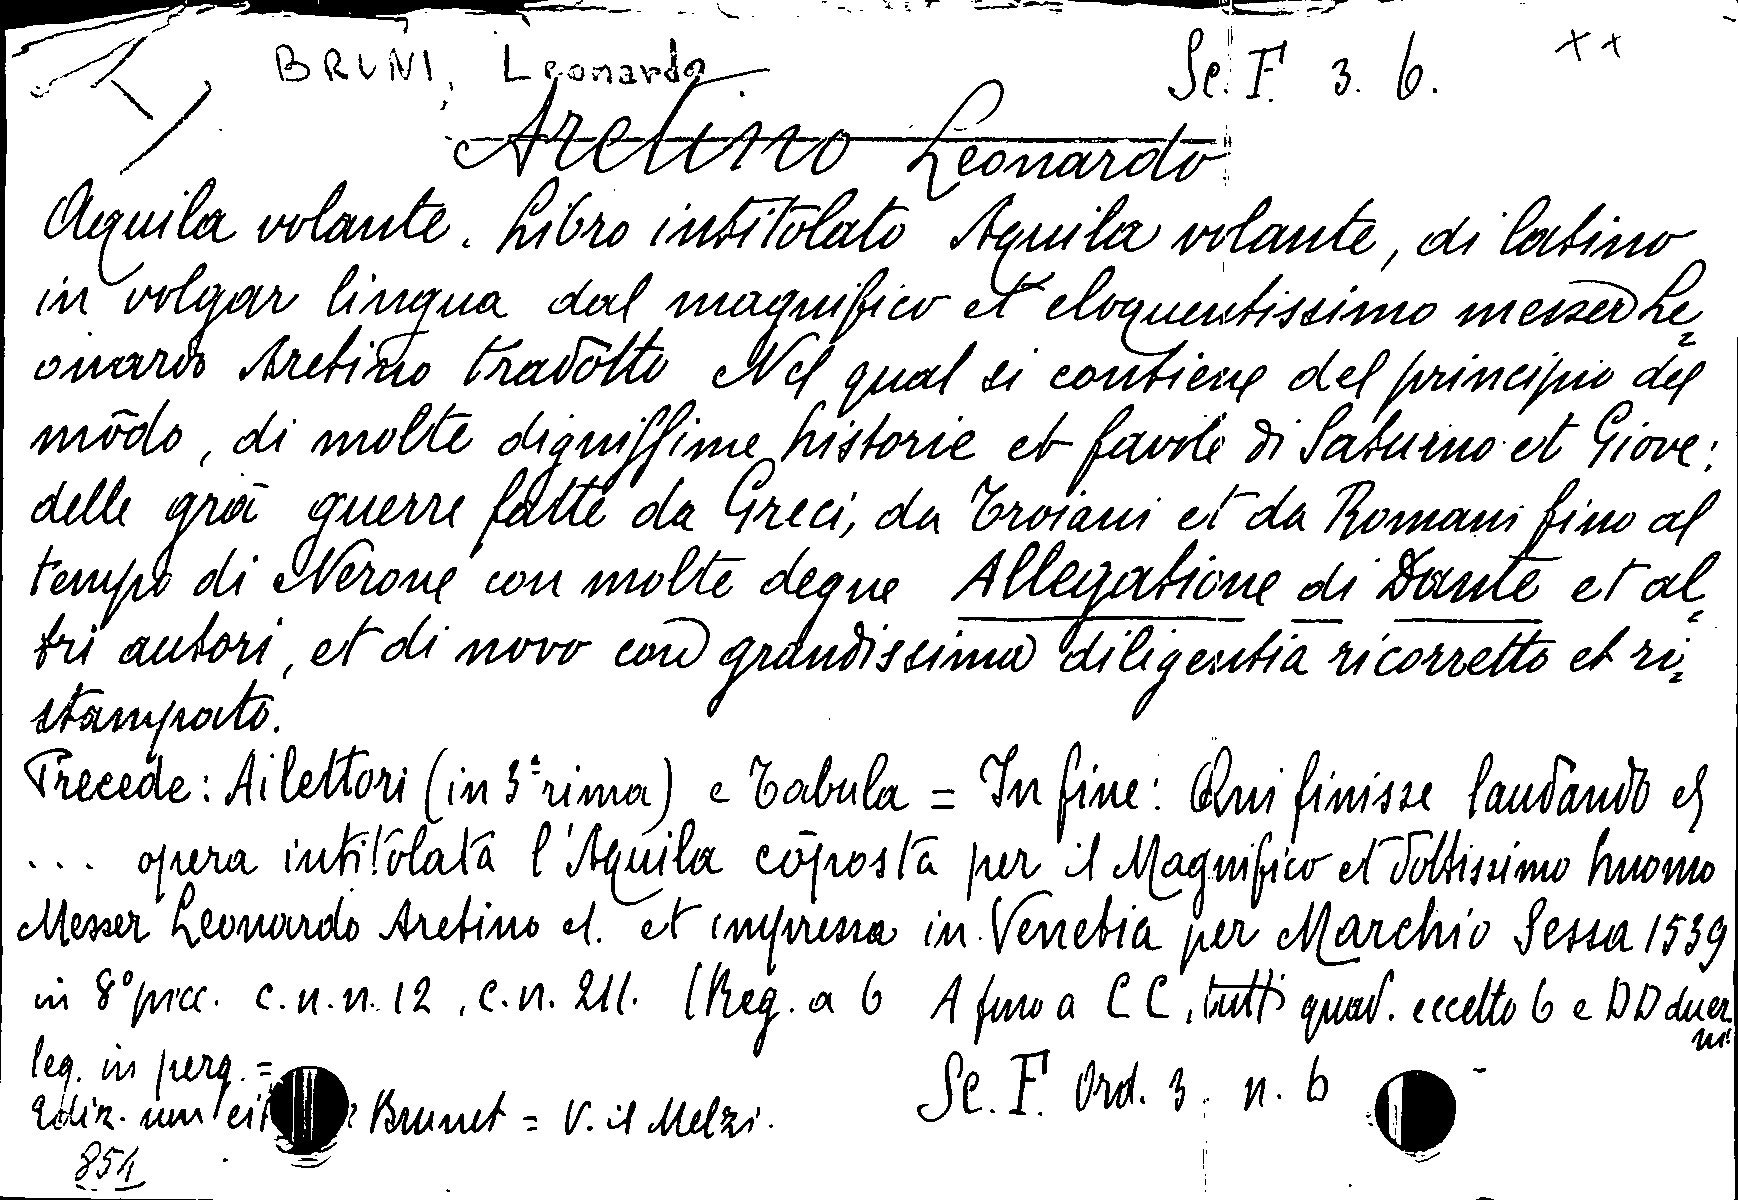 BRUNI, Leonardo Sc. F. 3. 6. ++
Aretino Leonardo
Aquila volante. Libro intitolato Aquila volante, di latino
in volgar lingua dal magnifico et eloquentissimo messer Le=
onardo Aretino tradotto Nel qual si contiene del principio del
mōdo, di molte dignissime historie et favole di Saturno et Giove:
delle grā guerre fatte da Greci, da Troiani et da Romani fino al
tempo di Nerone con molte degne Allegatione di Dante et al=
tri autori, et di novo con grandissima diligentia ricorretto et ri=
stampato.
Precede: Ai lettori (in 3ª rima) e Tabula = In fine: Qui finisse laudando el
... opera intitolata l'Aquila cōposta per il Magnifico et dottissimo huomo
Messer Leonardo Aretino et impressa in Venetia per Marchio Sessa 1539
in 8° picc. c.n.n. 12, c.n. 211. (Reg. a 6 A fino a CC, tutti quad. eccetto 6 e DD duer
ni
leg. in perg. =
Ediz. non Brunet = V. il Melzi. Sc. F. Ord. 3. n. 6
854